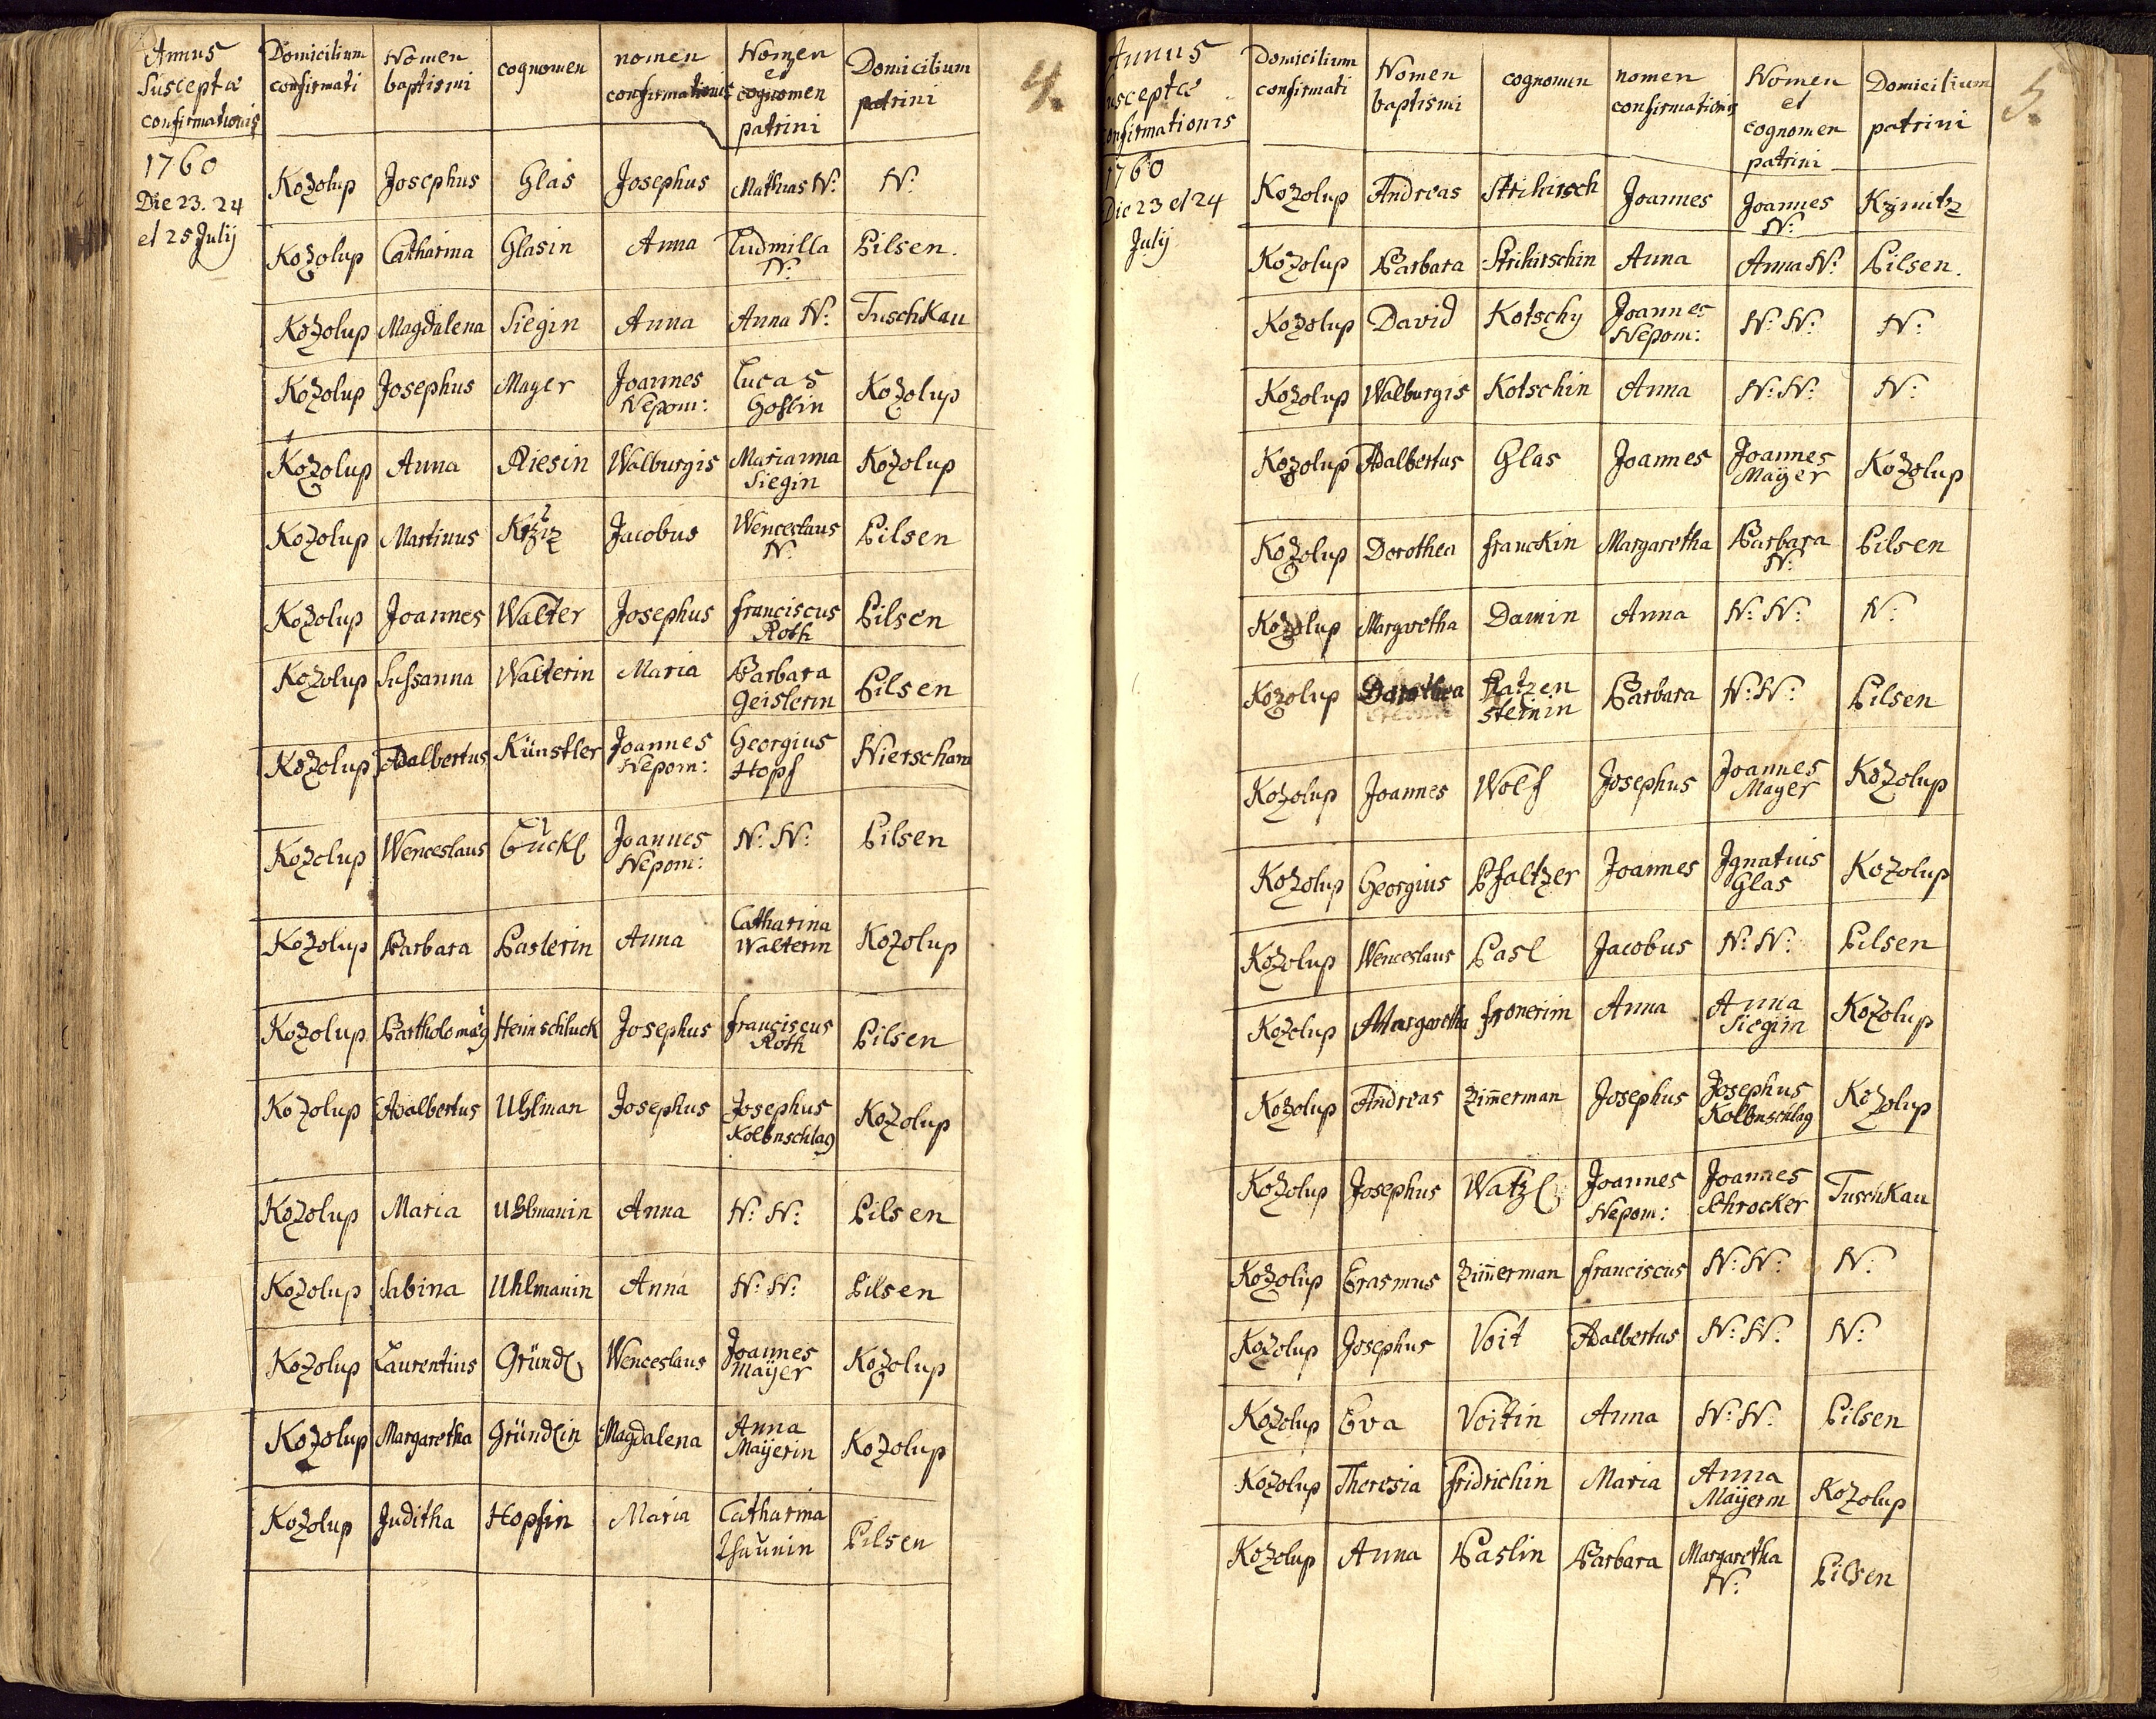 4.
Annus
Susceptæ
confirmationis
Domicilium
confirmati
Nomen
baptismi
cognomen
nomen
confirmationis
Nomen
et
cognomen
patrini
Domicilium
patrini
1760
Die 23. 24
et 25 Julij
Kozolup Josephus Glas Josephus Mathias N: N:
Kozolup Catharina Glasin Anna Ludmilla N: Pilsen.
Kozolup Magdalena Siegin Anna Anna N: Tuschkau
Kozolup Josephus Mayer Joannes Nepom: Lucas Kozolup
Kozolup Anna Riesin Walburgis Marianna Siegin Kozolup
Kozolup Martinus Jacobus Wenceslaus N: Pilsen
Kozolup Joannes Walter Josephus Franciscus Roth Pilsen
Kozolup Sussanna Walterin Maria Barbara Geislerin Pilsen
Kozolup Adalbertus Künstler Joannes Nepom: Georgius Hopf Nierschan
Kozolup Wenceslaus Joannes Nepom: N: N: Pilsen
Kozolup Barbara Paslerin Anna Catharina Walterin Kozolup
Kozolup Bartholomæ9 Heinschluck Josephus Franciscus Roth Pilsen
Kozolup Adalbertus Uhlman Josephus Josephus Kolbnschlag Kozolup
Kozolup Maria Uhlmanin Anna N: N: Pilsen
Kozolup Sabina Uhlmanin Anna N: N: Pilsen
Kozolup Laurentius Gründl Wenceslaus Joannes Mayer Kozolup
Kozolup Margaretha Gründlin Magdalena Anna Mayerin Kozolup
Kozolup Juditha Hopfin Maria Catharina Pilsen
5.
Annus
susceptæ
confirmationis
Domicilium
confirmati
Nomen
baptismi
cognomen
nomen
confirmationis
Nomen
et
cognomen
patrini
Domicilium
patrini
1760
Die 23 et 24
Julij
Kozolup Andreas Strihirsch Joannes Joannes N: Kzimitz
Kozolup Barbara Strihirschin Anna Anna N: Pilsen.
Kozolup David Kotschy Joannes Nepom: N: N: N:
Kozolup Walburgis Kotschin Anna N: N: N:
Kozolup Adalbertus Glas Joannes Joannes Mayer Kozolup
Kozolup Dorothea Franckin Margaretha Barbara N: Pilsen
Kozolup Margaretha Damin Anna N: N: N:
Kozolup Dorothea Ratzen steinin Barbara N: N: Pilsen
Kozolup Joannes Wolf Josephus Joannes Mayer Kozolup
Kozolup Georgius Pfaltzer Joannes Ignatius Glas Kozolup
Kozolup Wenceslaus Pasl Jacobus N: N: Pilsen
Kozolup Margaretha Fronerin Anna Anna Siegin Kozolup
Kozolup Andreas Zim̄erman Josephus Josephus Kolbnschlag Kozolup
Kozolup Josephus Watzl Joannes Nepom: Joannes Schrocker Tuschkau
Kozolup Erasmus Zim̄erman Franciscus N: N: N:
Kozolup Josephus Voit Adalbertus N: N: N:
Kozolup Eva Voitin Anna N: N: Pilsen
Kozolup Theresia Fridrichin Maria Anna Mayerin Kozolup
Kozolup Anna Paslin Barbara Margaretha N: Pilsen